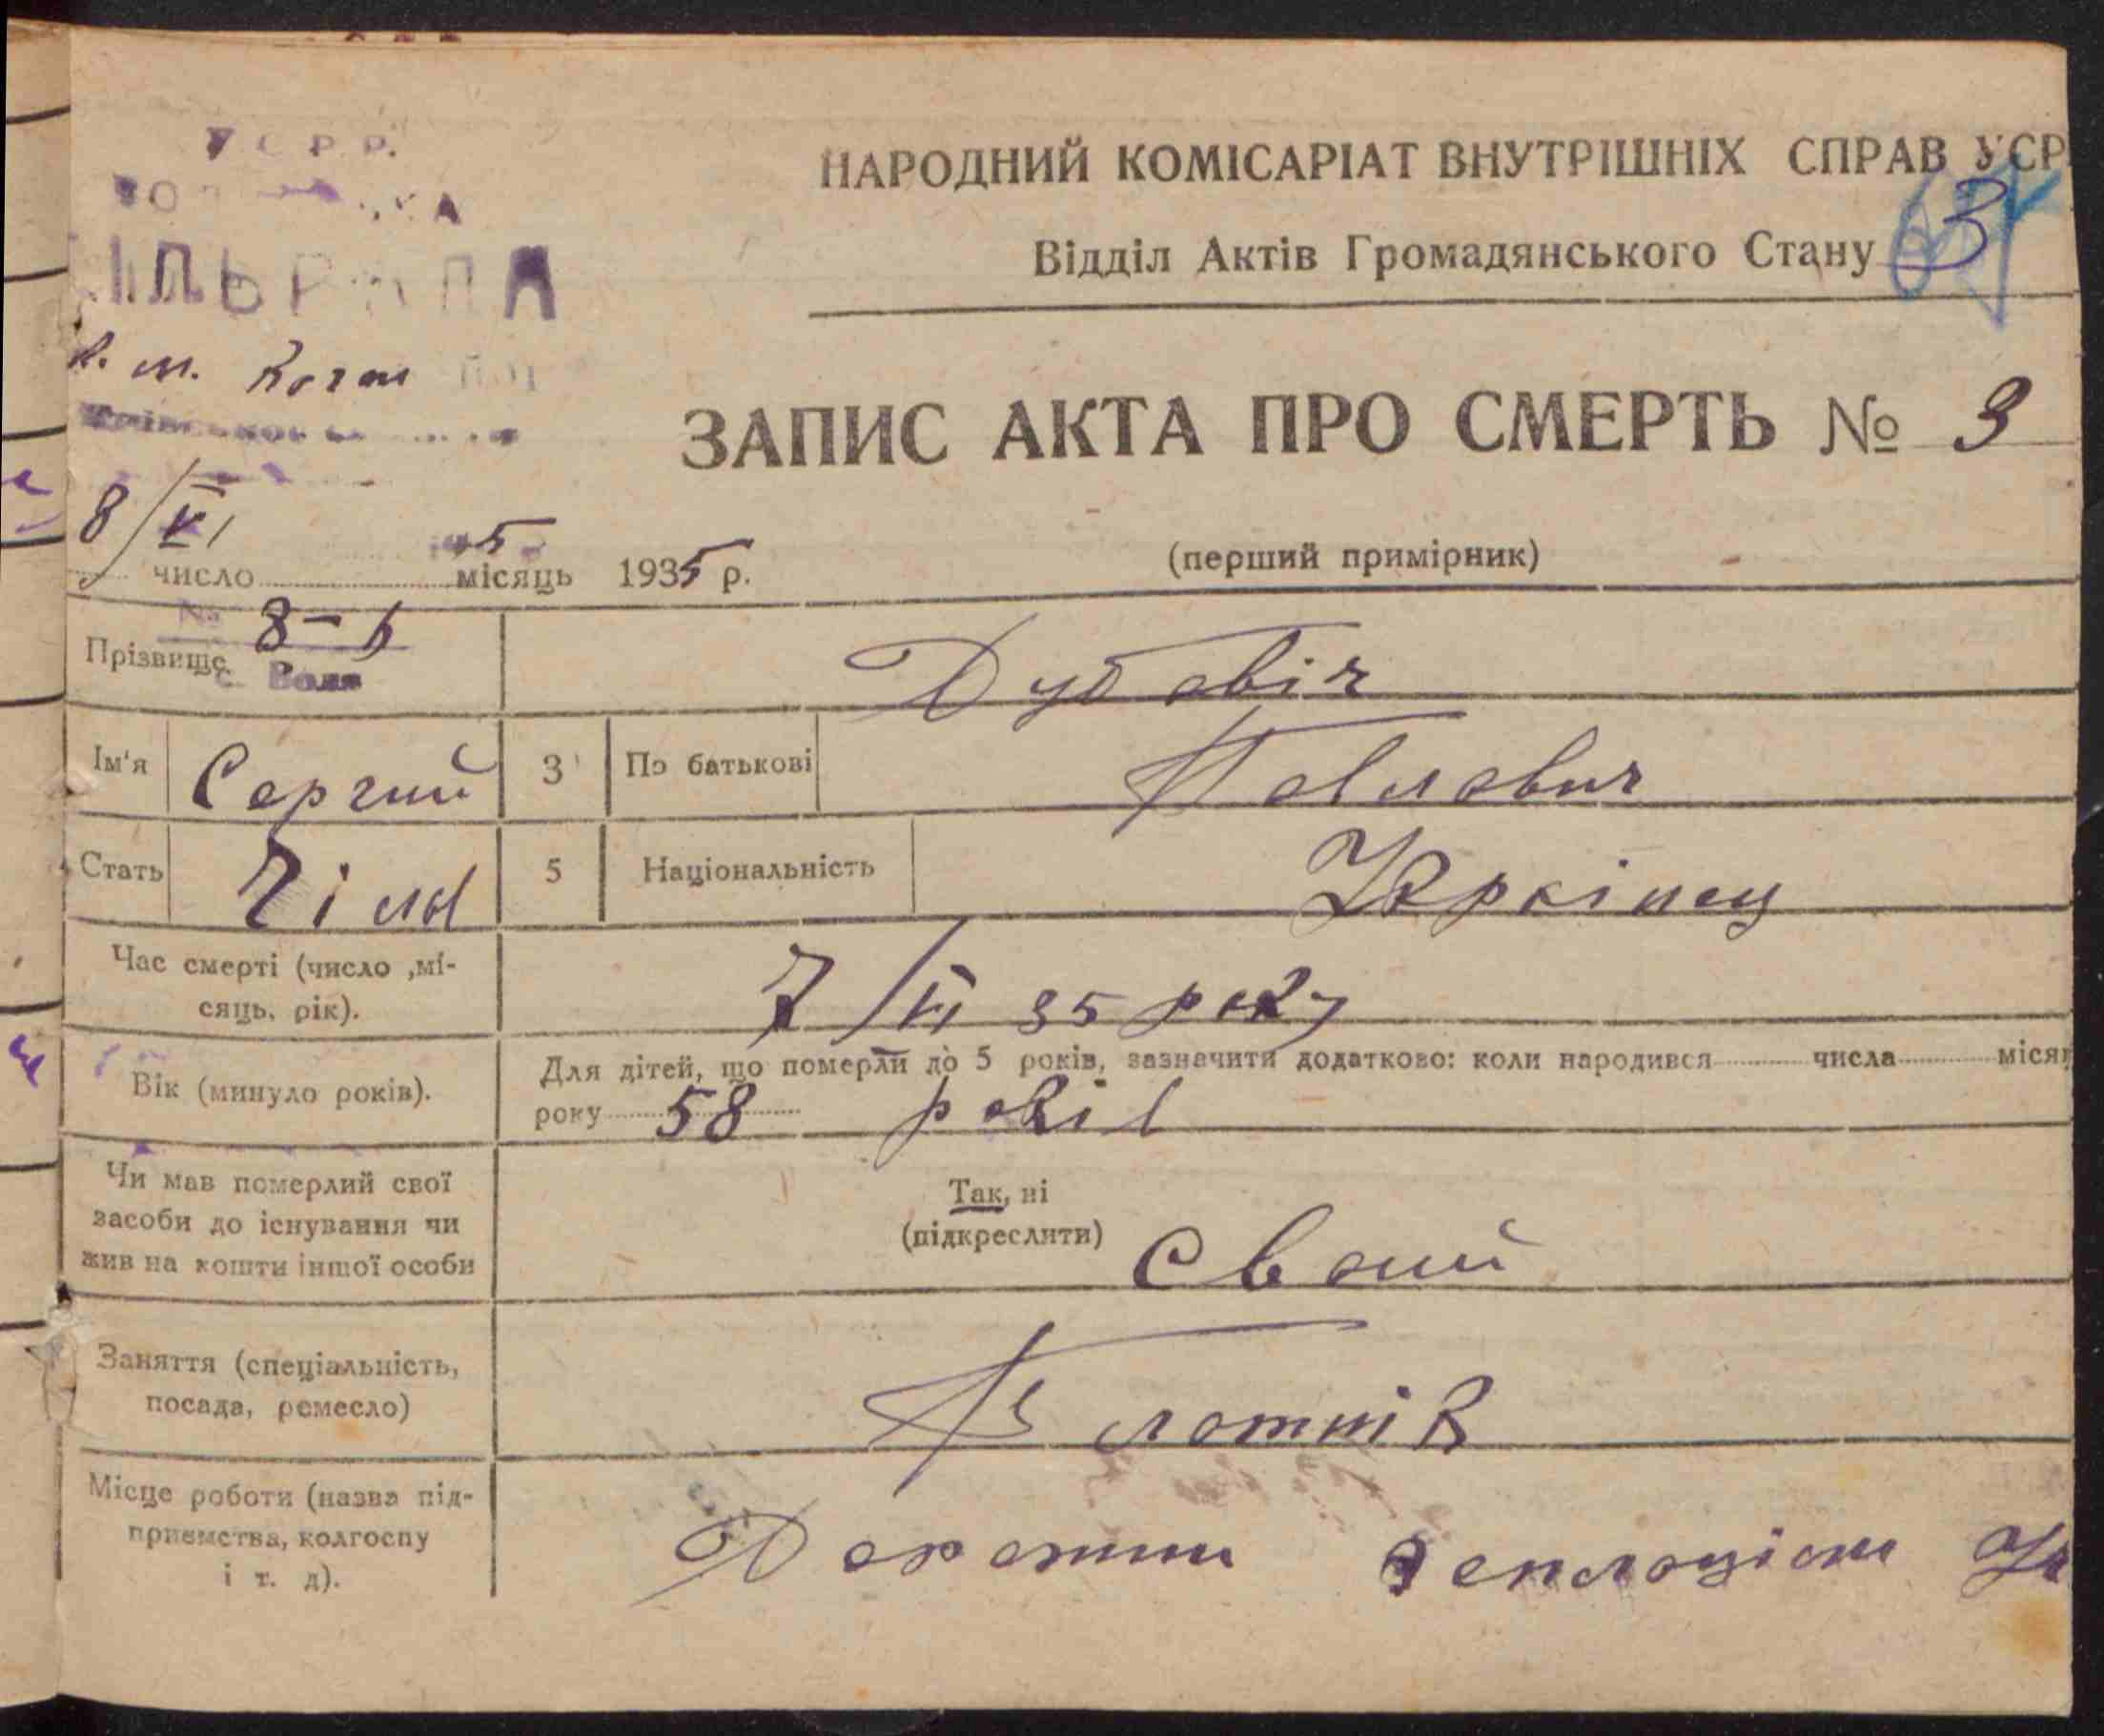 УСРР.
ІЛЬРАДА
НАРОДНИЙ КОМІСАРІАТ ВНУТРІШНІХ СПРАВ УСР
Відділ Актів Громадянського Стану
3
ЗАПИС АКТА ПРО СМЕРТЬ № 3
(перший примірник)
8/VI
число місяць 1935 р.
№ 8-
с. Воля
Прізвище Дубовіч
Ім'я Сергий 3 По батькові Павлович
Стать Чілов 5 Національність Украінец
Час смерті (число ,мі-
сяць, рік).
7/VI 35 року
Вік (минуло років).
Для дітей, що померли до 5 років, зазначити додатково: коли народився числа міся
року 58 років
Чи мав померлий свої
засоби до існування чи
жив на кошти іншої особи
Так, ні
(підкреслити) Своий
Заняття (спеціальність,
посада, ремесло)
Плотнік
Місце роботи (назва під-
приємства, колгоспу
і т. д).